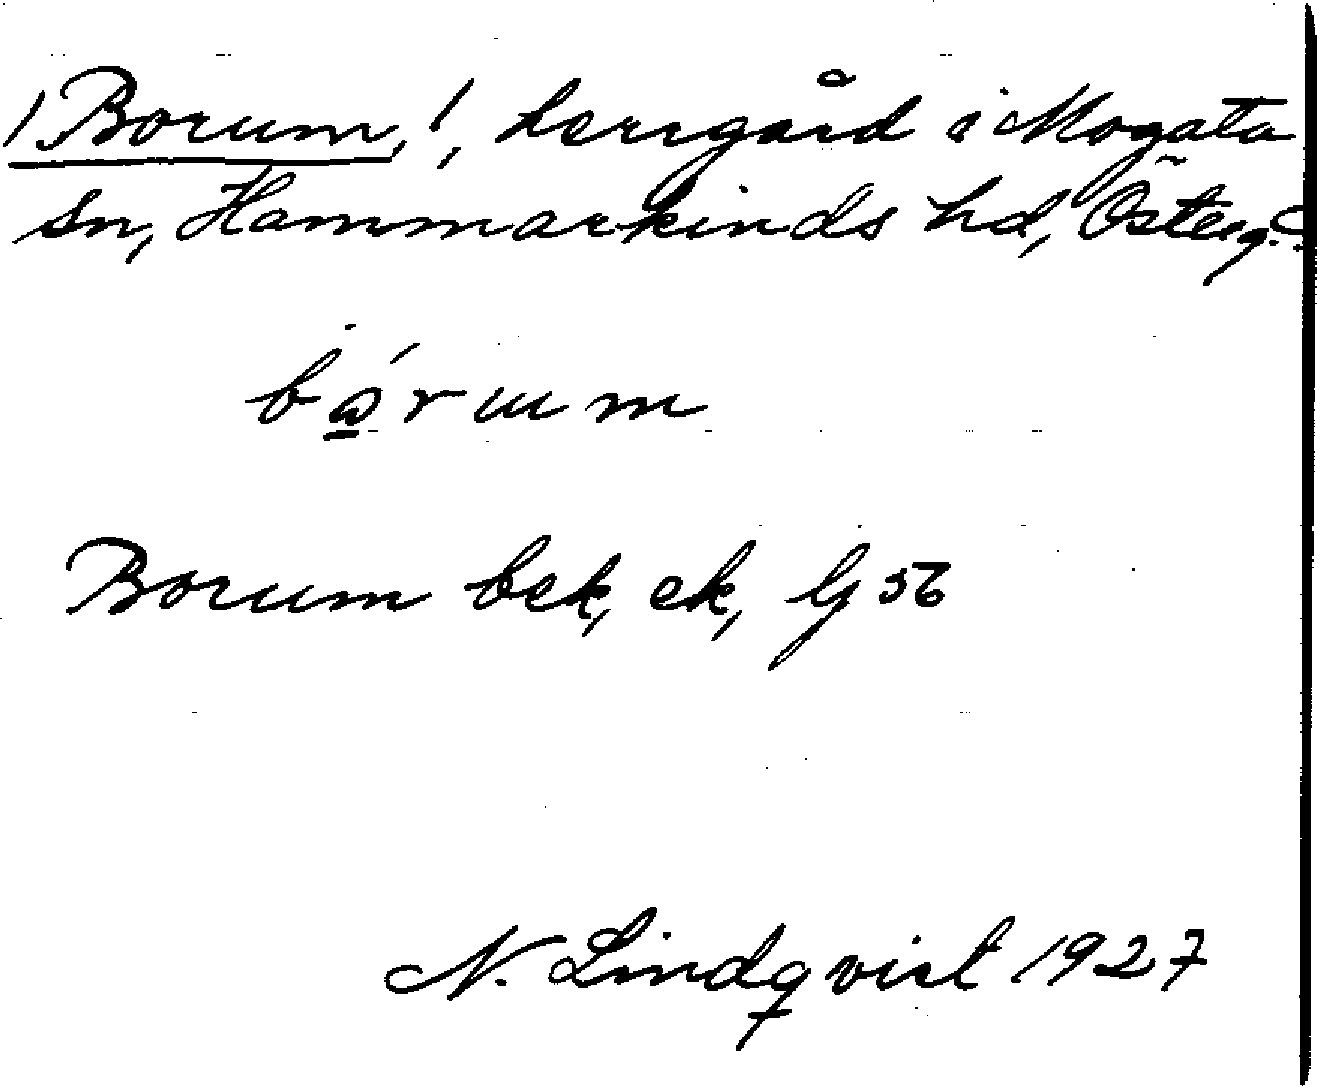 /Borum,/, herrgård i Mogata
sn, Hammarkinds hd, Österg.
bó̲rum
Borum bek, ek, Gj 56
N. Lindqvist 1927